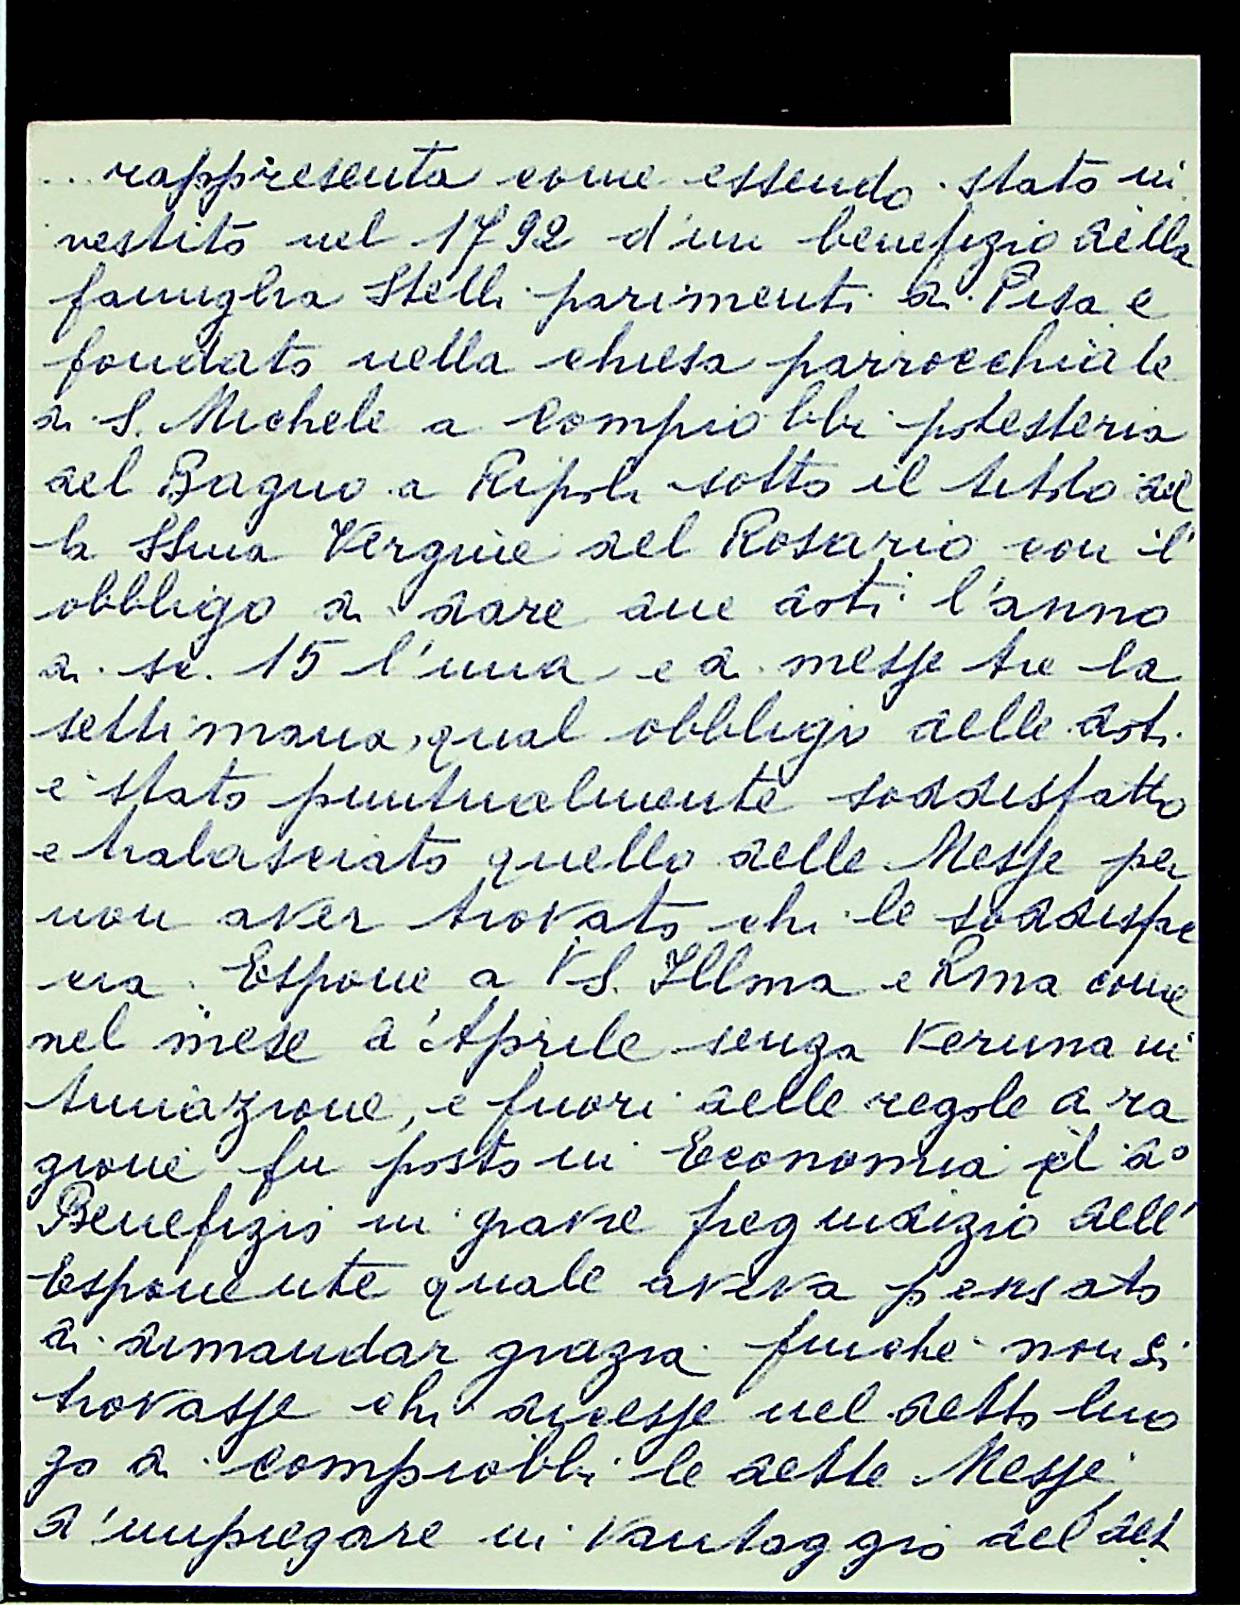 ... rappresenta come essendo stato in
vestito nel 1792 d'un benefizio della
famiglia Stelli parimenti di Pisa e
fondato nella chiesa parrocchiale
di S. Michele a Compiobbi potesteria
del Bagno a Ripoli sotto il titolo del
la SSma Vergine del Rosario con l'
obbligo di dare due doti l'anno
di sc. 15 l'una e di messe tre la
settimana, qual obbligo delle doti
è stato puntualmente soddisfatto
e tralasciato quello delle Messe per
non aver trovato chi le soddisfa
ceva. Espone a VS. Illma e Rma come
nel mese d'Aprile senza veruna in
timazione, e fuori delle regole di ra
gione fu posto in Economia il do
Benefizio in grave pregiudizio dell'
Esponente quale aveva pensato
di dimandar grazia finché non si
trovasse chi dicesse nel detto luo
go di Compiobbi le dette Messe
d'impiegare in vantaggio del det